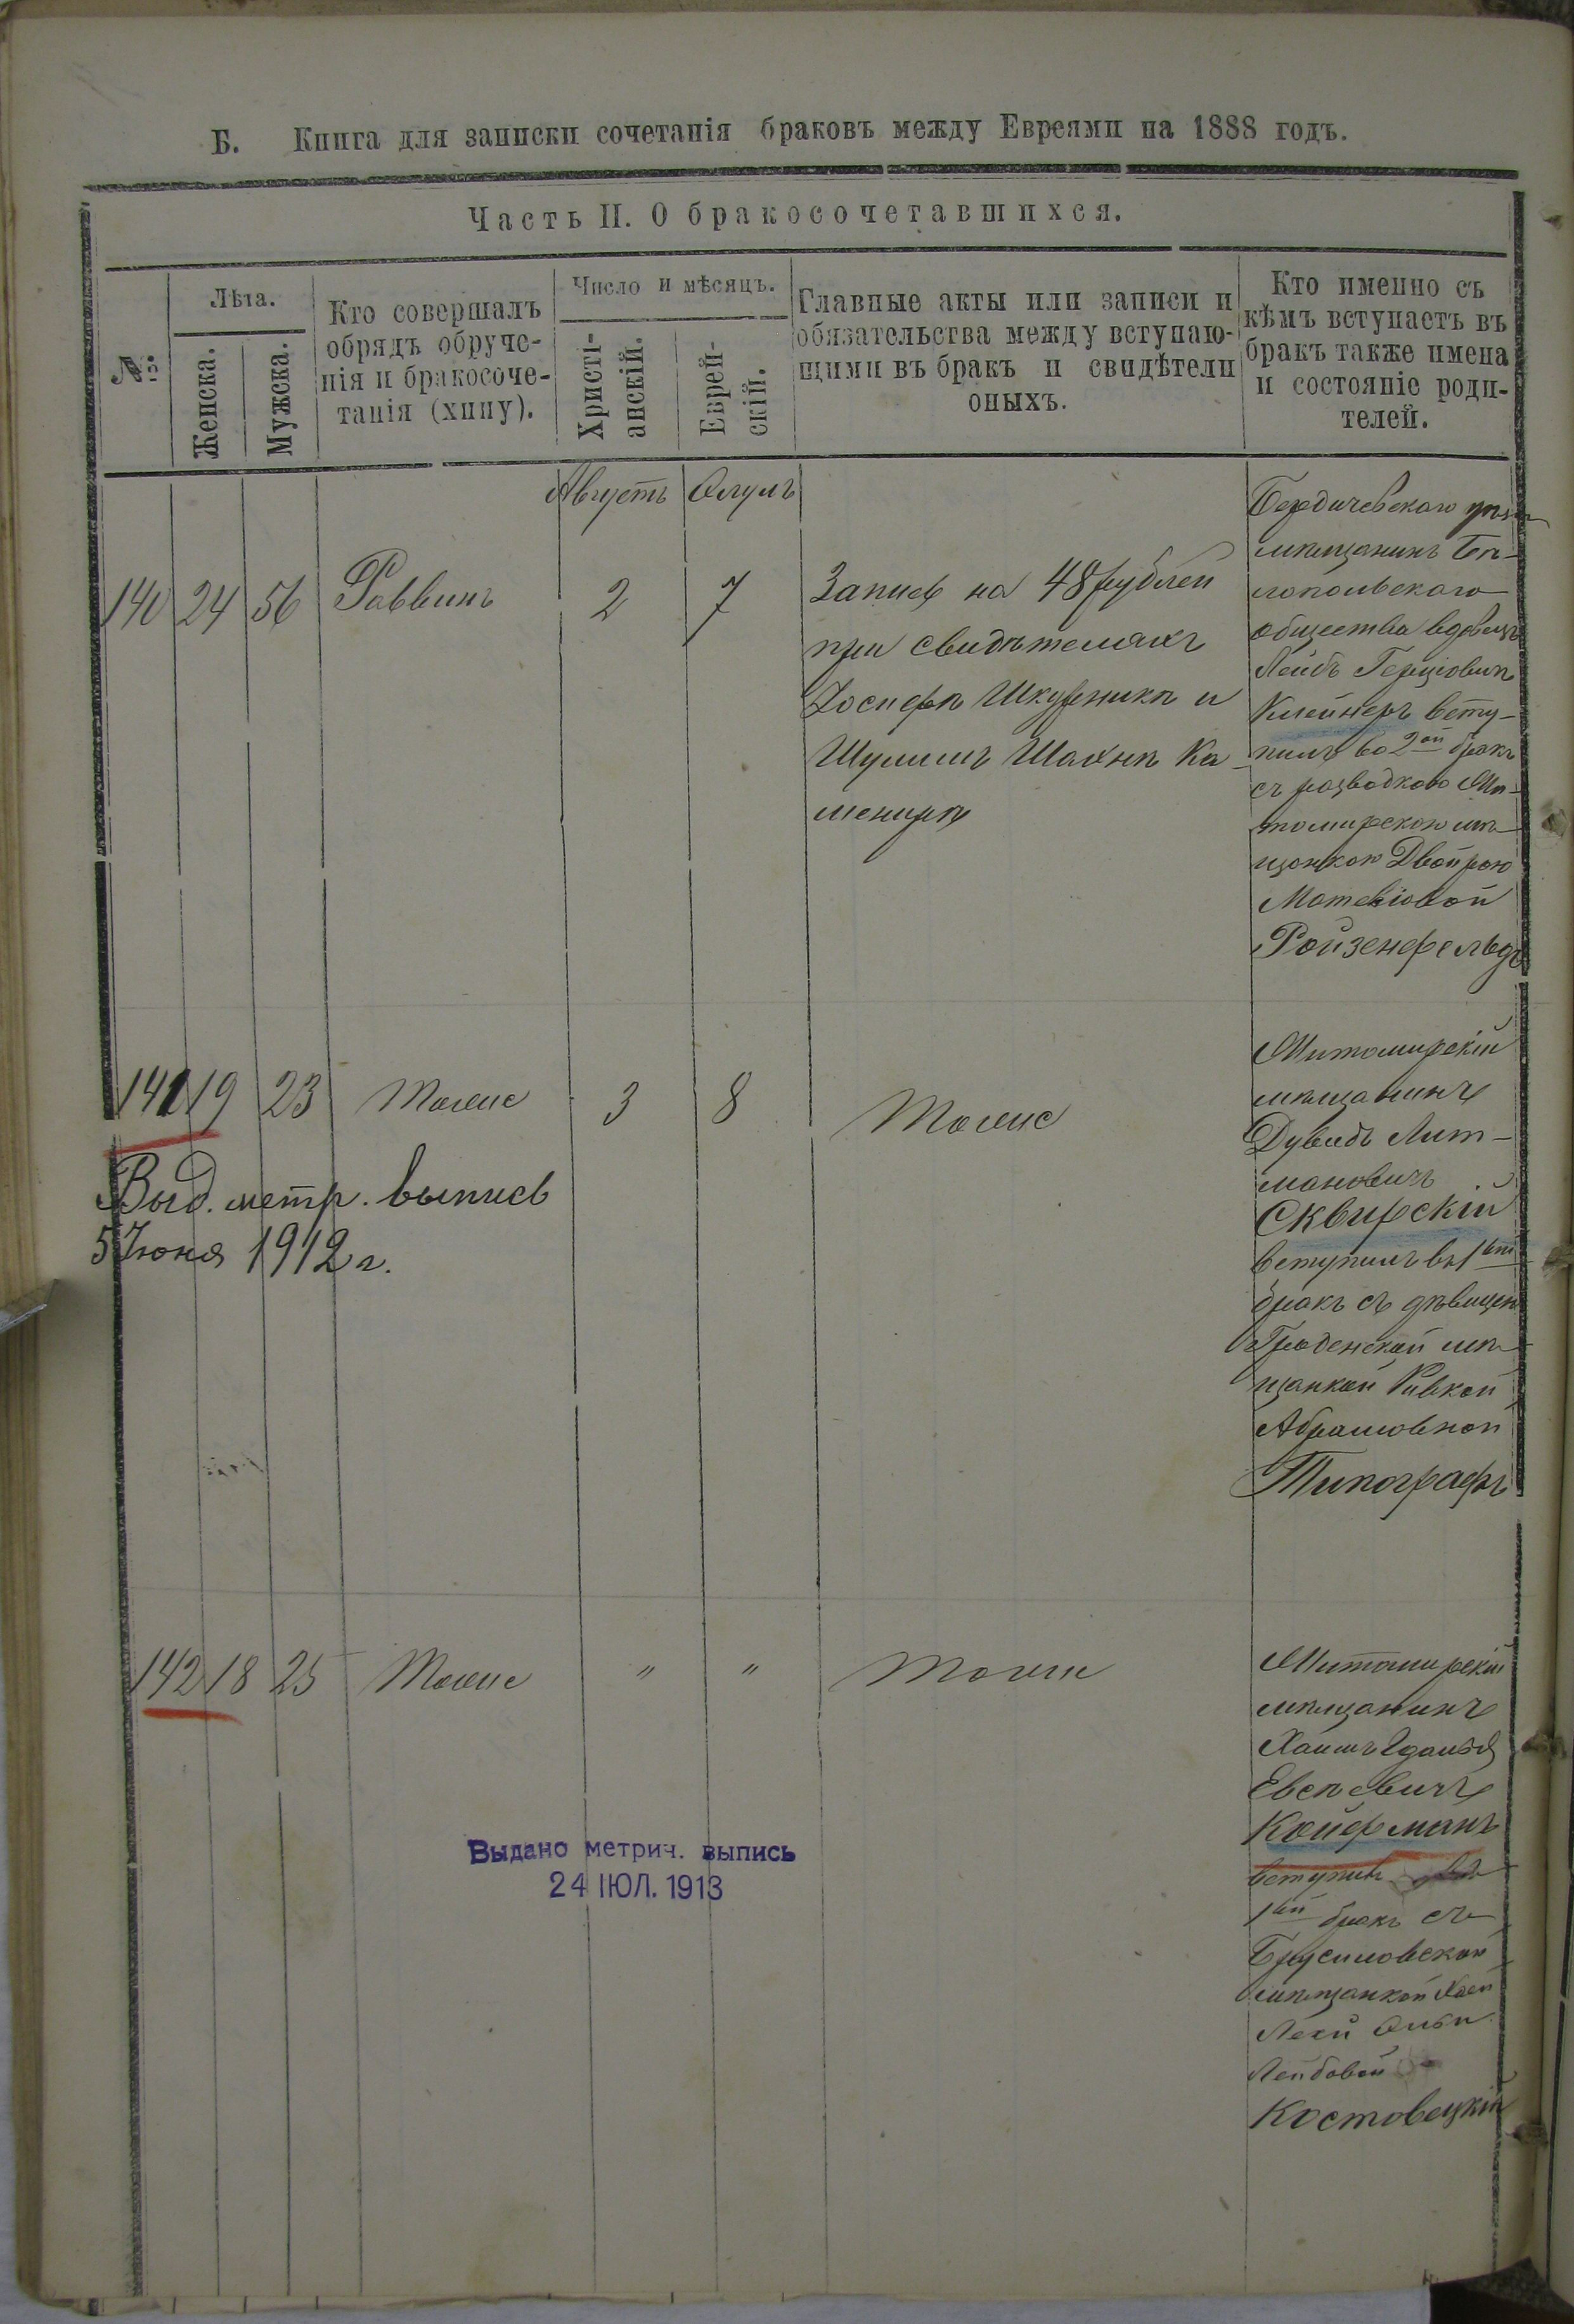 Б. Книга для записки сочетанія браковъ между Евреями на 1888 годъ.
Часть II. О бракосочетавшихся.
№
Лѣта.
Женска.
Мужска.
Кто совершалъ
обрядъ обруче-
нія и бракосоче-
танія (хипу).
Число и мѣсяцъ.
Христі-
анскій.
Еврей-
скій.
Главные акты или записи и
обязательства между вступаю-
щими въ бракъ и свидѣтели
оныхъ.
Кто именно съ
кѣмъ вступаетъ въ
бракъ также имена
и состояніе роди-
телей.
Августъ Элулъ
140 24 56 Раввинъ 2 7
Запись на 48 рублей
при свидѣтеляхъ
Іосифѣ Шкурникѣ и
Шулимъ Шахнѣ Ка-
менирѣ
Бердичевскаго
мѣщанинъ Бѣ-
лопольскаго
общества вдовецъ
Лейбъ Герціовичъ
Клейнеръ всту-
пилъ во 2ой бракъ
съ разводкою Жи-
томирскою мѣ-
щанкою Двойрою
Мотевіовой
Ройзенфельдъ
141 19 23 Тоже 3 8 Тоже
Выд. метр. выпись
5 Іюня 1912 г.
Житомирскій
мѣщанинъ
Дувидъ Лит-
мановичъ
Сквирскій
вступилъ въ 1ый
бракъ съ дѣвицей
Гроденской мѣ-
щанкой Ривкой
Абрамовной
Типографъ
142 18 25 Тоже " " Тоже
Выдано метрич. выпись
24 ІЮЛ. 1913
Житомирскій
мѣщанинъ
Хаимъ Гдалья
Евсѣевичъ
Койфманъ
вступилъ въ
1ый бракъ съ
Брусиловской
мѣщанкой Хаей
Лейбовой
Костовецкій